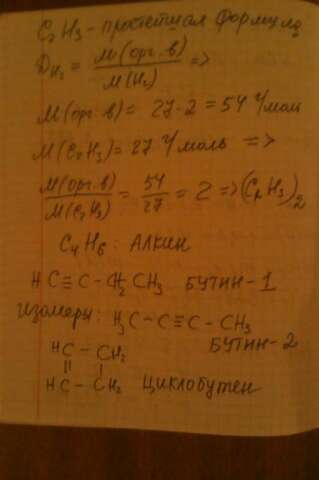 C₂H₃ - простейшая формула
D H₂ = M(орг.в) / M(H₂) =>
M(орг.в) = 27·2 = 54 г/моль
M(C₂H₃) = 27 г/моль =>
M(орг.в) / M(C₂H₃) = 54 / 27 = 2 => (C₂H₃)₂
C₄H₆ : АЛКИН
HC≡C-CH₂CH₃ БУТИН-1
изомеры: H₃C-C≡C-CH₃
БУТИН-2
HC-CH₂
HC-CH₂ ЦИКЛОБУТЕН